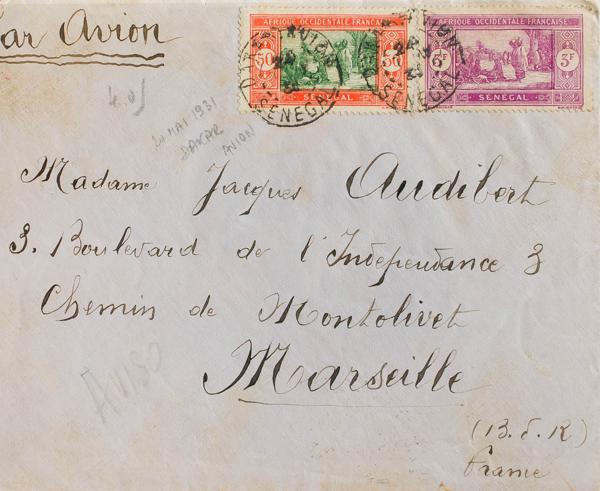 Par Avion
AFRIQUE OCCIDENTALE FRANÇAISE
50 50
SENEGAL
AFRIQUE OCCIDENTALE FRANÇAISE
3F
SENEGAL
DAKAR AVION
SENEGAL
AVION
SENEGAL
24 MAI 1931
DAKAR
AVION
Madame Jacques Audibert
3. Boulevard de l'Independance 3
Chemin de Montolivet
Marseille
AVISO
(B.d.R)
France